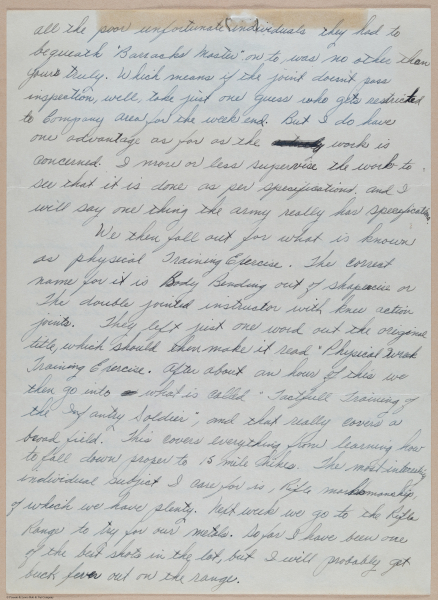 all the poor unfortunate individuals they had to
bequeath "Barracks Master" on to was no other than
yours truly. Which means if the joint doesn't pass
inspection, well, take just one guess who gets restricted
to Company area for the week end. But I do have
one advantage as far as the work is
concerned. I more or less supervise the work to
see that it is done as per specifications, and I
will say one thing the army really has specifications.
We then fall out for what is known
as physical Training Exercise. The correct
name for it is Body Bending out of shape or
The double jointed instructor with knee action
joints. They left just one word out the original
title, which should then make it read "Physical
Training Exercise. After about an hour of this we
then go into what is called " Training of
the Infantry Soldier", and that really covers a
broad field. This covers everything from learning how
to fall down proper to 15 mile hikes. The most interesting
individual subject I care for is, Rifle marksmanship,
of which we have plenty. Next week we go to the Rifle
Range to try for our metals. So far I have been one
of the best shots in the lot, but I will probably get
buck fever out on the range.